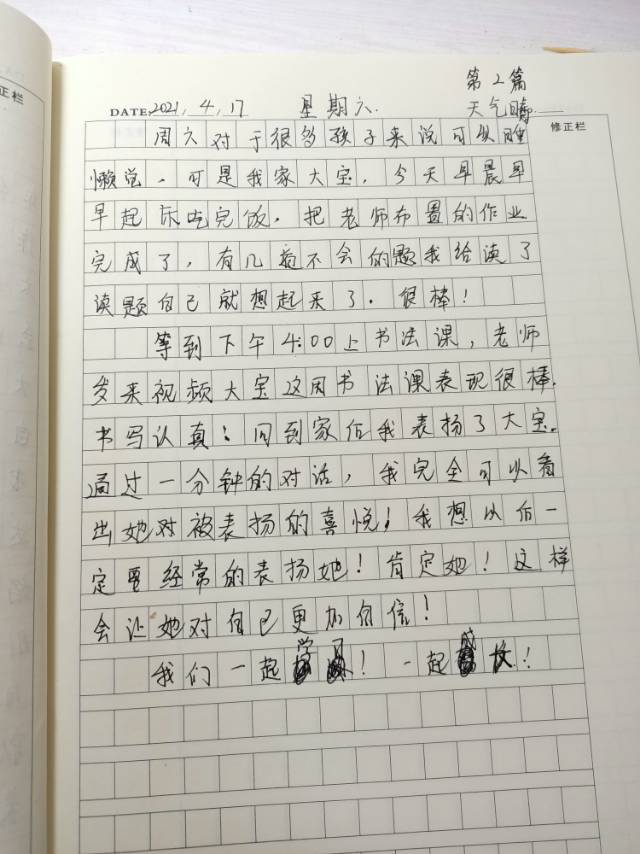 第2篇
DATE 2021.4.17 星期六. 天气晴.
修正栏
周六对于很多孩子来说可以睡
懒觉。可是我家大宝,今天早晨早
早起床吃完饭,把老师布置的作业
完成了,有几道不会的题我给读了
读题自己就想起来了。很棒!
等到下午4:00上书法课,老师
发来视频大宝这周书法课表现很棒.
书写认真!回到家后我表扬了大宝。
通过一分钟的对话,我完全可以看
出她对被表扬的喜悦!我想以后一
定要经常的表扬她!肯定她!这样
会让她对自己更加自信!
我们一起学习!一起成长!